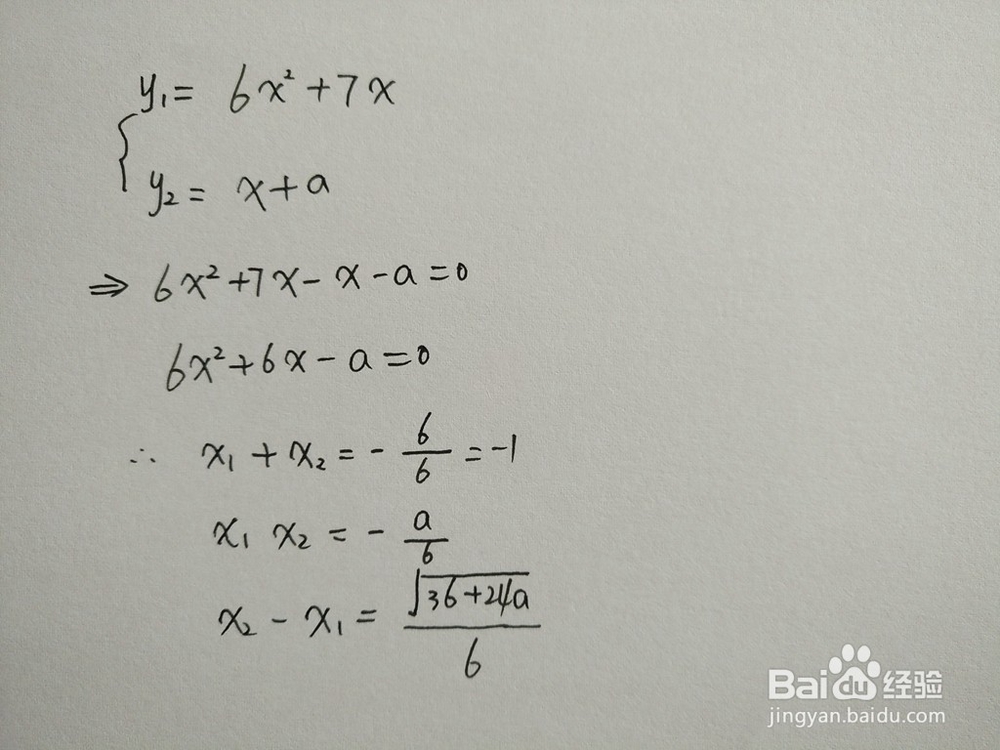 y₁ = 6x² + 7x
y₂ = x + a
⇒ 6x² + 7x - x - a = 0
6x² + 6x - a = 0
∴ x₁ + x₂ = - 6/6 = -1
x₁ x₂ = - a/6
x₂ - x₁ = √(36+24a)/6
Baidu经验
jingyan.baidu.com